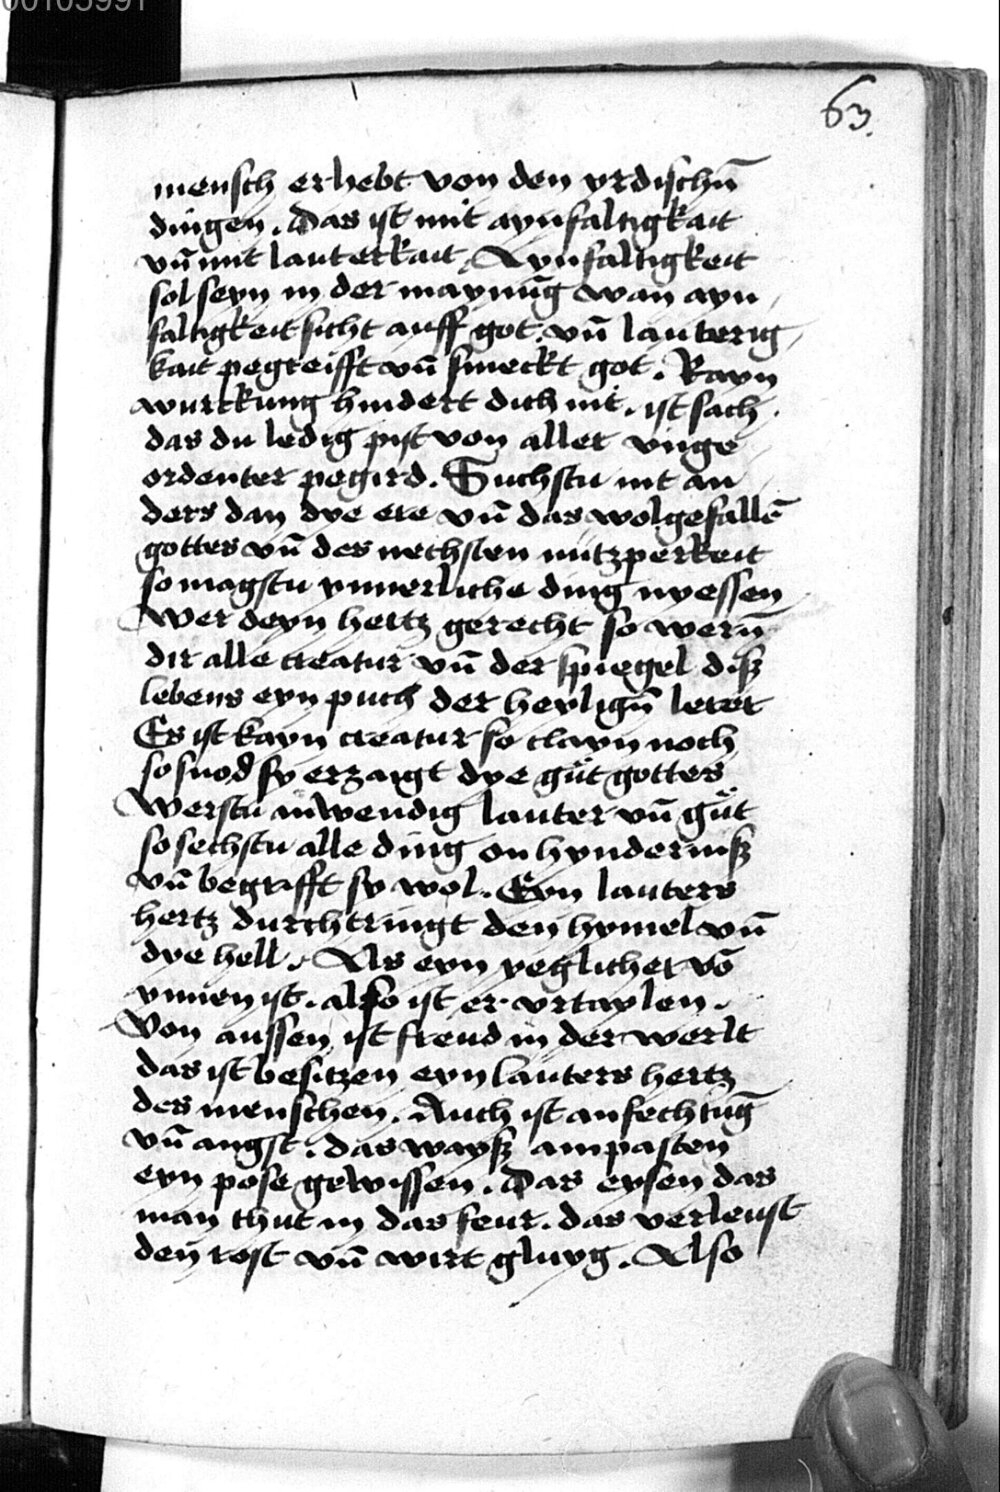 00105991
63.
mensch erhebt von den yrdischn̄
dingen. Das ist mit aynfaltigkait
vn̄ mit lauterkait, Aynfaltigkeit
sol seyn in der maynūg wan ayn
faltigkeit sicht auff got. vn̄ lauterig
kait pegreifft vn̄ smeckt got. Kayn
wurckung hindert dich nit. ist sach.
das du ledig pist von aller vnge
ordenter pegird. Suchstu nit an
ders dan dye ere vn̄ das wolgefallē
gottes vn̄ des nechsten nutzperkeit
so magstu ynnerliche ding nyessen
Wer deyn hertz gerecht so wern̄
dir alle creatur vn̄ der spiegel diß
lebens eyn puch der heylign̄ lerer
Es ist kayn creatur so clayn noch
so snod sy erzaigt dye gůt gottes
Werstu inwendig lauter vn̄ gůt
so sechstu alle ding on hynderniß
vn̄ begrifft sy wol. Eyn lauters
hertz durchtringt den hymel vn̄
dye hell. Als eyn yeglicher vō
ynnen ist. also ist er vrtaylen.
Von aussen ist freud in der werlt
das ist besitzen eyn lauters hertz
des menschen. Auch ist anfechtūg
vn̄ angst. das wayß am pasten
eyn pose gewissen. Das eysen das
man thut in das feur. das verleust
den rost vn̄ wirt gluyg. Also